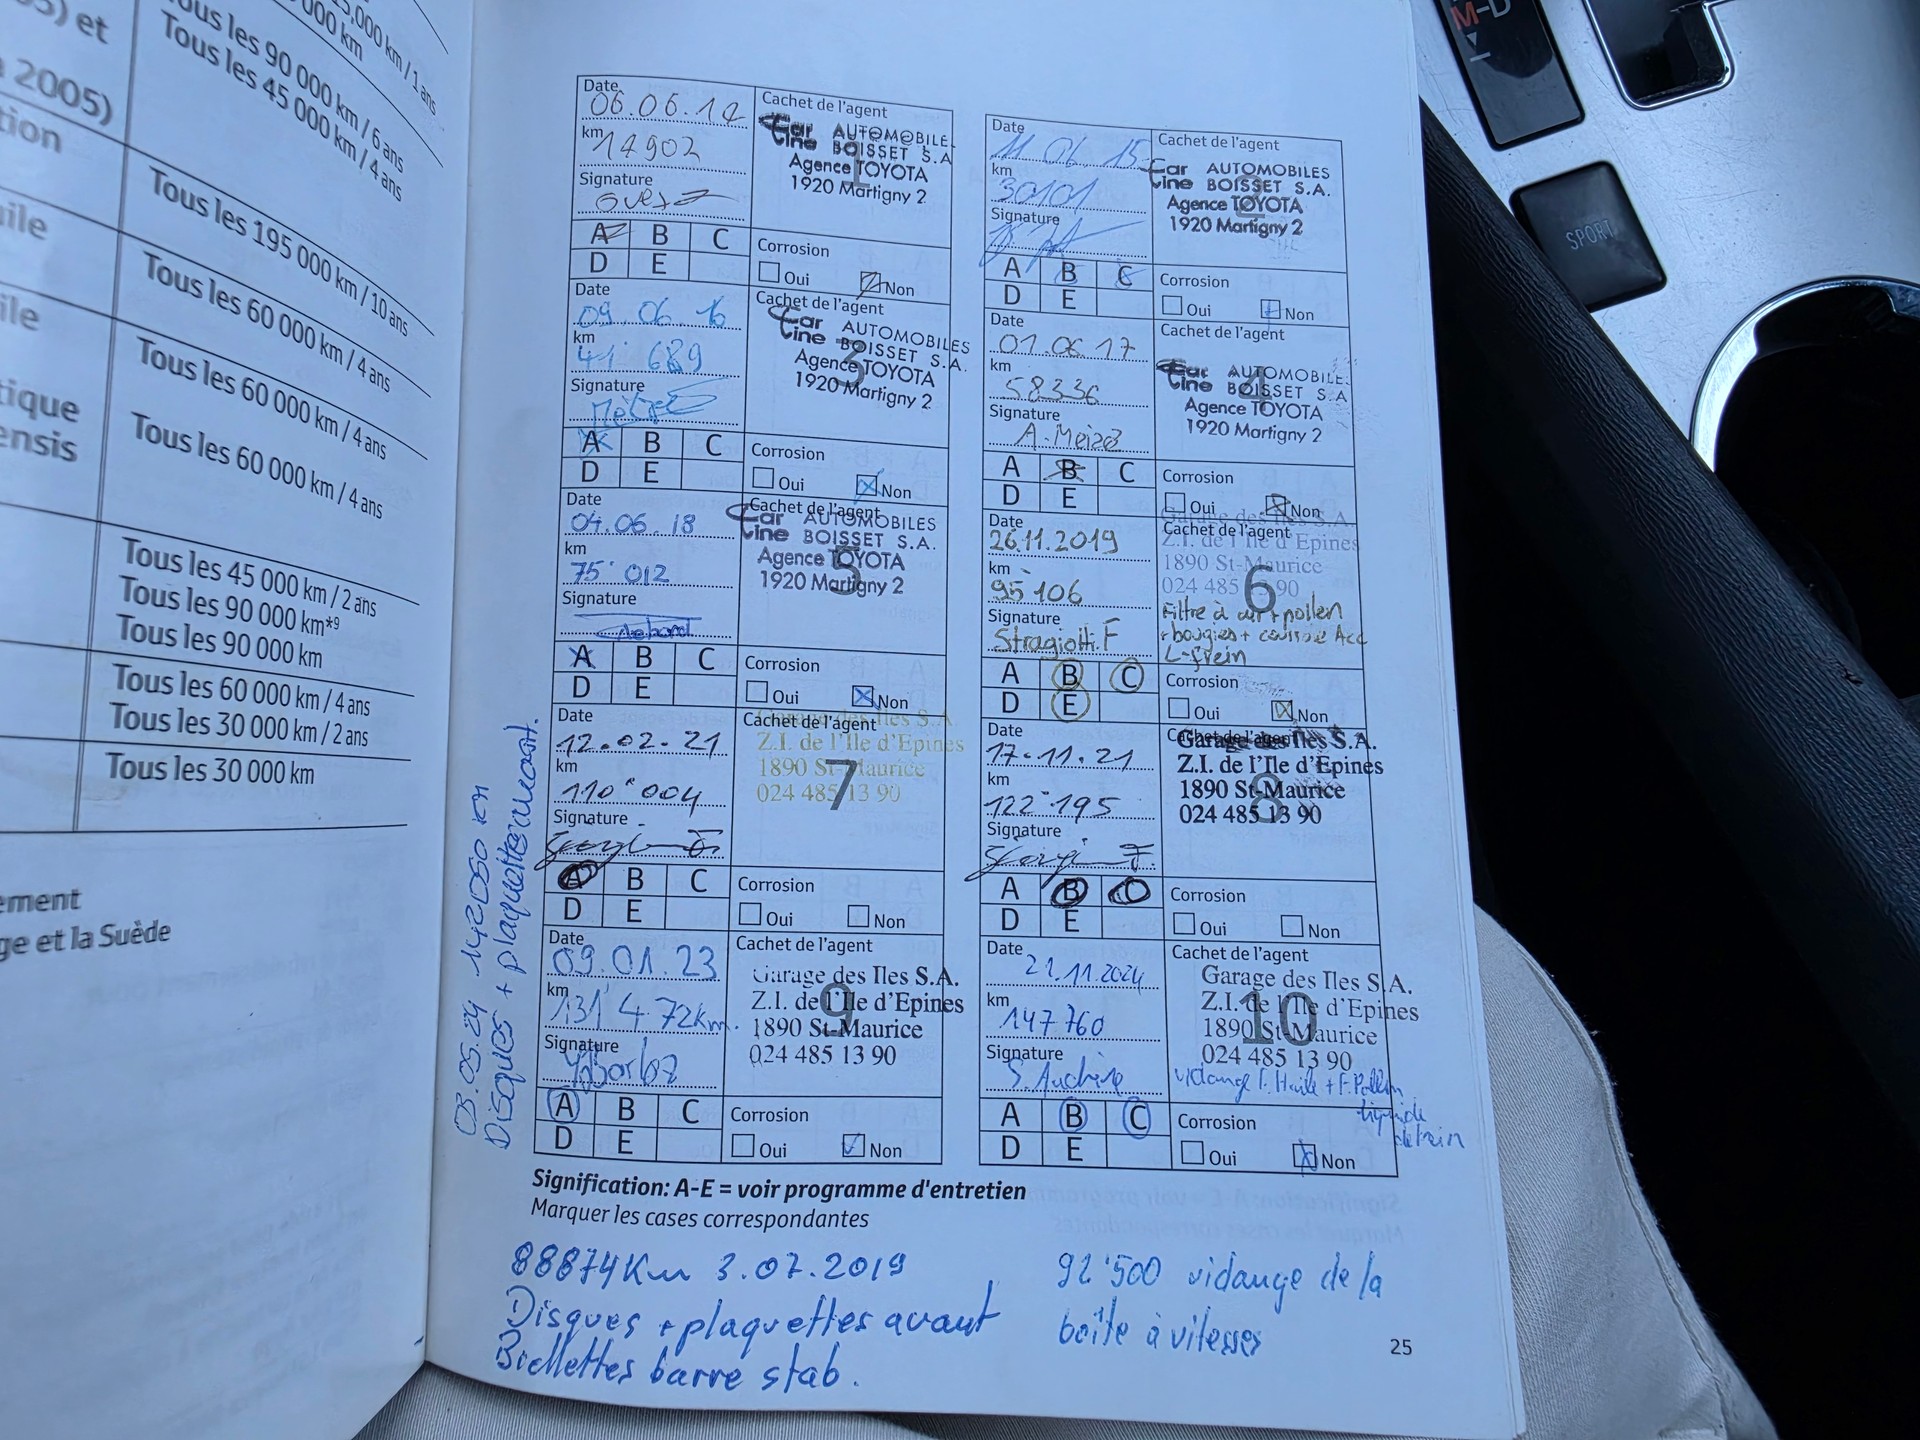 05) et
2005)
tion
uile
ile
tique
ensis
ement
ge et la Suède
000 km / 1 ans
000 km
Tous les 90 000 km / 6 ans
Tous les 45 000 km / 4 ans
Tous les 195 000 km / 10 ans
Tous les 60 000 km / 4 ans
Tous les 60 000 km / 4 ans
Tous les 60 000 km / 4 ans
Tous les 45 000 km / 2 ans
Tous les 90 000 km*9
Tous les 90 000 km
Tous les 60 000 km / 4 ans
Tous les 30 000 km / 2 ans
Tous les 30 000 km
Date
06.06.14
km
14902
Signature
Cachet de l'agent
1
Car Line AUTOMOBILE
BOISSET S.A
Agence TOYOTA
1920 Martigny 2
A B C
D E
Corrosion
Oui Non
Date
11 06 15
km
30101
Signature
Cachet de l'agent
2
Car AUTOMOBILES
Line BOISSET S.A.
Agence TOYOTA
1920 Martigny 2
A B C
D E
Corrosion
Oui Non
Date
09.06.16
km
41'689
Signature
Cachet de l'agent
3
Car AUTOMOBILES
Line BOISSET S.A.
Agence TOYOTA
1920 Martigny 2
A B C
D E
Corrosion
Oui Non
Date
01.06.17
km
58336
Signature
Cachet de l'agent
4
Car AUTOMOBILE
Line BOISSET S.A
Agence TOYOTA
1920 Martigny 2
A B C
D E
Corrosion
Oui Non
Date
04.06.18
km
75'012
Signature
Cachet de l'agent
5
Car AUTOMOBILES
Line BOISSET S.A.
Agence TOYOTA
1920 Martigny 2
A B C
D E
Corrosion
Oui Non
Date
26.11.2019
km
95'106
Signature
Stragiotti.F
Cachet de l'agent
6
Garage des Iles S.A.
Z.I. de l'Ile d'Epines
1890 St-Maurice
024 485 13 90
Filtre à air + pollen
+ bougies +
L-frein
A B C
D E
Corrosion
Oui Non
Date
12.02.21
km
110'004
Signature
Cachet de l'agent
7
Garage des Iles S.A
Z.I. de l'Ile d'Epines
1890 St-Maurice
024 485 13 90
A B C
D E
Corrosion
Oui Non
Date
17.11.21
km
122'195
Signature
Cachet de l'agent
8
Garage des Iles S.A.
Z.I. de l'Ile d'Epines
1890 St-Maurice
024 485 13 90
A B C
D E
Corrosion
Oui Non
Date
09.01.23
km
131'472km.
Signature
Cachet de l'agent
9
Garage des Iles S.A.
Z.I. de l'Ile d'Epines
1890 St-Maurice
024 485 13 90
A B C
D E
Corrosion
Oui Non
Date
21.11.2024
km
147760
Signature
Cachet de l'agent
10
Garage des Iles S.A.
Z.I. de l'Ile d'Epines
1890 St-Maurice
024 485 13 90
vidange F. Huile + F. Pollen
liquide
de frein
A B C
D E
Corrosion
Oui Non
03.05.24 142050 KM
Disques + plaquettes avant.
Signification: A-E = voir programme d'entretien
Marquer les cases correspondantes
88874Km 3.07.2019
Disques + plaquettes avant
Biellettes barre stab.
92'500 vidange de la
boîte à vitesses
25
M-D
SPORT